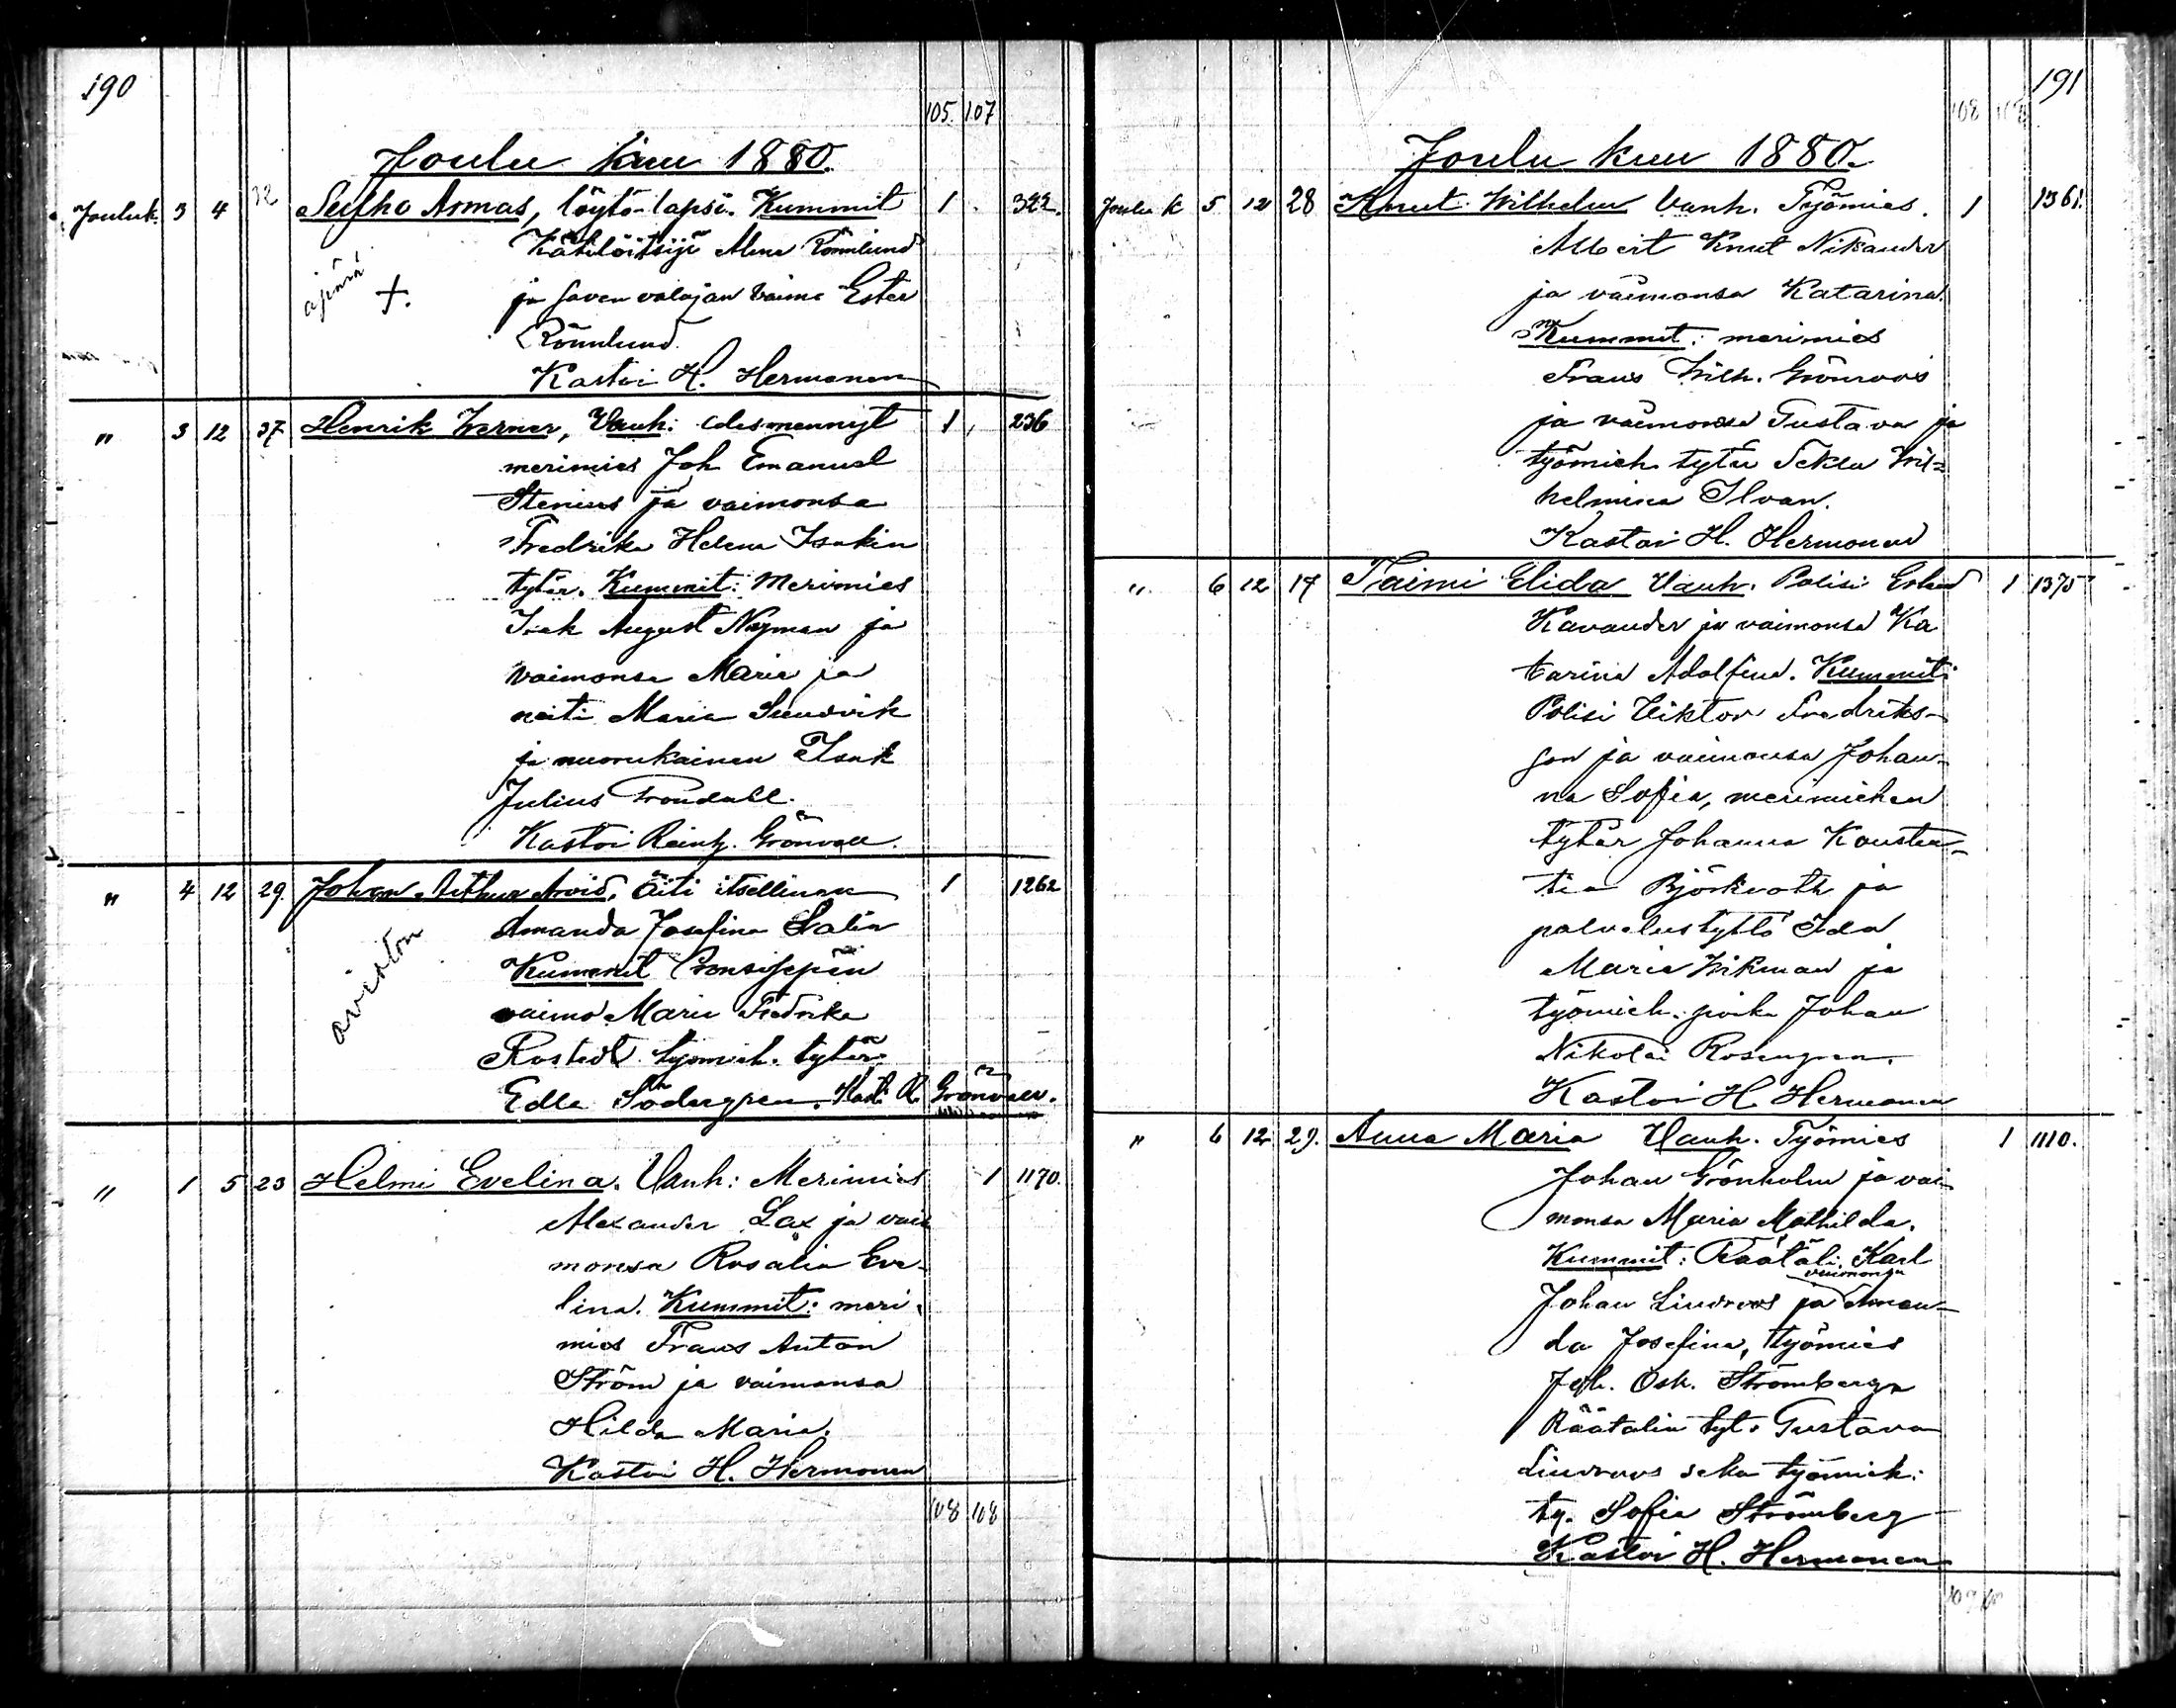 190
105. 107
Joulu kuu 1880.
Jouluk. 3 4 32 Seipho Armas, löytö-lapsi. Kummit 1 322.
Kätilöitsijä Alma Rönnlund
äpärä +. ja saven valajan vaimo Ester
Rönnlund.
Kastoi H. Hermonen
" 3 12 37 Henrik Werner, Vanh: edesmennyt 1 236
merimies Joh Emanuel
Stenius ja vaimonsa
Fredrika Helena Isakin
tytär. Kummit: Merimies
Isak August Nyman ja
vaimonsa Maria ja
neiti Maria Sundvik
ja nuorukainen Isak
Julius Trondall.
Kastoi Reinh. Grönvall.
" 4 12 29. Johan Arthur Arvid. Äiti itsellinen 1 1262
Amanda Josefina Salin
avioton Kummit
vaimo Maria Fredrika
Rostedt työmieh. tytär
Edla Södergren. Kast. R. Grönvall.
" 1 5 23 Helmi Evelina. Vanh: Merimies 1 1170.
Alexander Lax ja vai
monsa Rosalia Eve-
lina. Kummit: meri-
mies Frans Anton
Ström ja vaimonsa
Hilda Maria.
Kastoi H. Hermonen
108 108
191
108 108
Joulu kuu 1880.
Joulu k 5 12 28 Knut Wilhelm Vanh. Työmies. 1 1361.
Albert Knut Nikander
ja vaimonsa Katarina.
Kummit: merimies
Frans Wilh. Grönroos
ja vaimonsa Gustava ja
työmieh. tytär Tekla Wil=
helmina Ilvan.
Kastoi H. Hermonen
" 6 12 17 Taimi Elida Vanh. Polisi 1 1375
Kavander ja vaimonsa Ka
tarina Adolfina. Kummit:
Polisi Viktor Fredriks-
son ja vaimonsa Johan-
na Sofia, merimiehen
tytär Johanna Konstan-
tia Björkroth ja
palvelustyttö Ida
Maria Wikman ja
työmieh. poika Johan
Nikolai Rosengren.
Kastoi H. Hermonen
" 6 12 29. Anna Maria Vanh. Työmies 1 1110.
Johan Grönholm ja vai-
monsa Maria Mathilda.
Kummit: Räätäli Karl
vaimonsa
Johan Lindroos ja Aman-
da Josefina, työmies
Joh. Osk. Strömberg
Räätälin tyt. Gustava
Lindroos sekä työmieh.
ty. Sofia Strömberg
Kastoi H. Hermonen